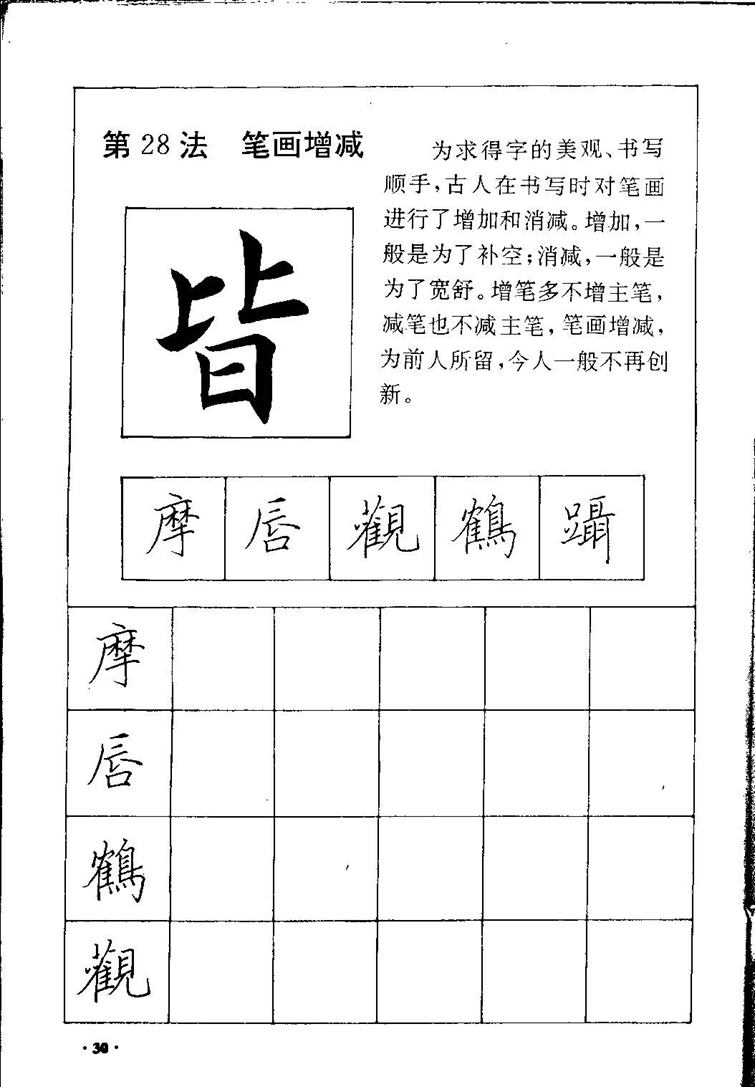 第28法 笔画增减
为求得字的美观、书写
顺手，古人在书写时对笔画
进行了增加和消减。增加，一
般是为了补空；消减，一般是
为了宽舒。增笔多不增主笔，
减笔也不减主笔，笔画增减，
为前人所留，今人一般不再创
新。
皆
摩 唇 觀 鶴 躡
摩
唇
鶴
觀
·30·